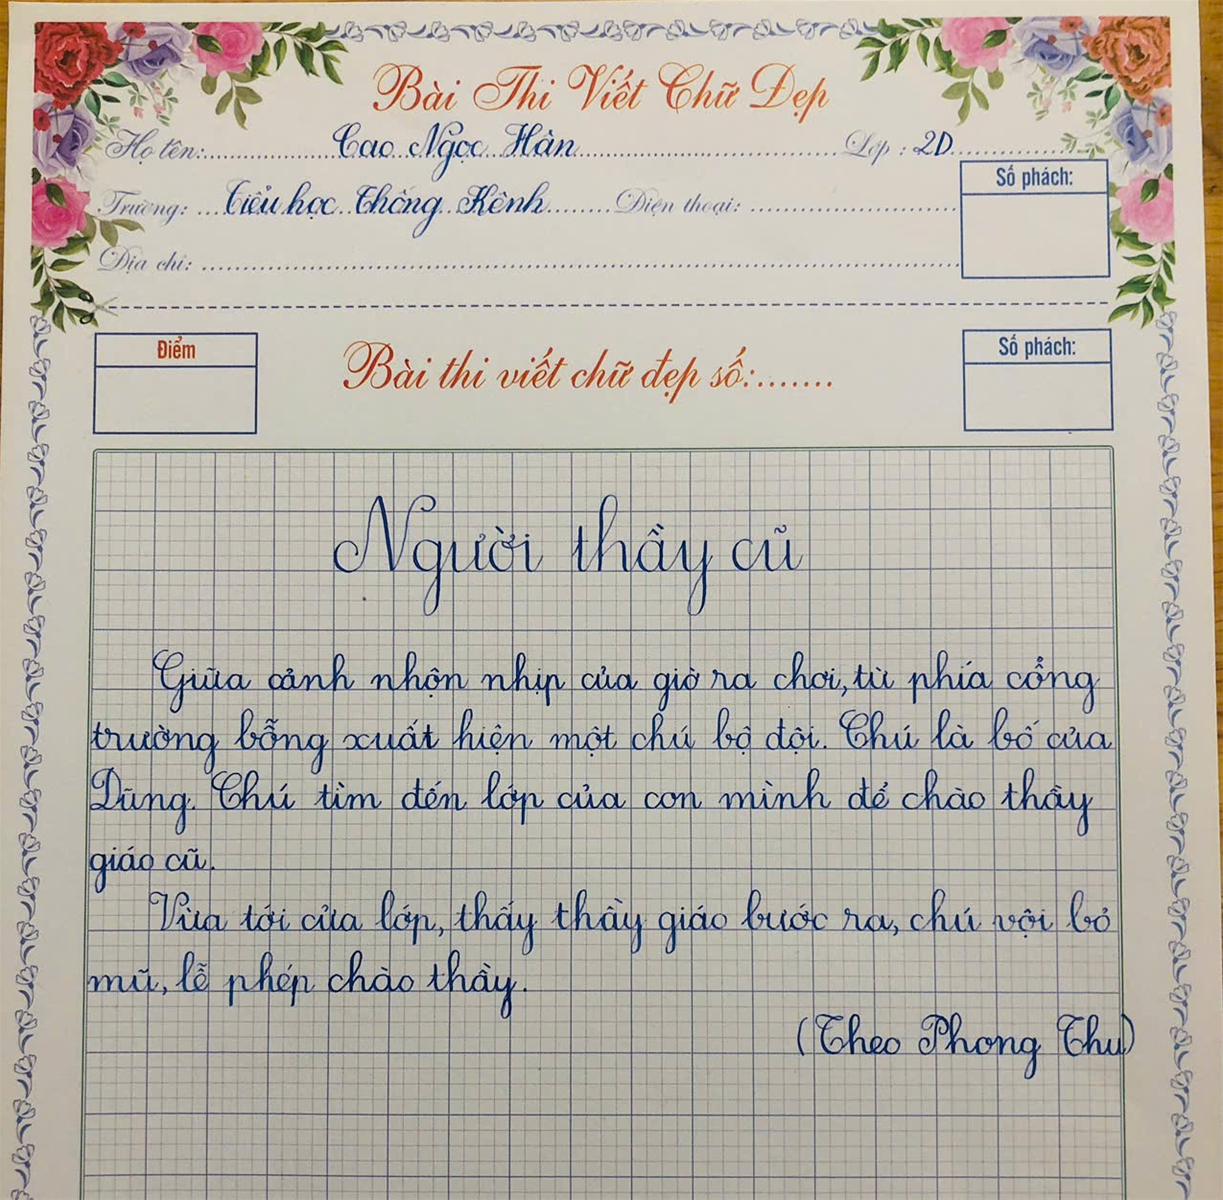 Bài Thi Viết Chữ Đẹp
Họ tên:.....Cao Ngọc Hàn.....Lớp : 2D.....
Số phách:
Trường: ...Tiểu học Thống Kênh.......Điện thoại: .....
Địa chỉ: .....
Điểm
Bài thi viết chữ đẹp số:.......
Số phách:
Người thầy cũ
Giữa cảnh nhộn nhịp của giờ ra chơi, từ phía cổng
trường bỗng xuất hiện một chú bộ đội. Chú là bố của
Dũng. Chú tìm đến lớp của con mình để chào thầy
giáo cũ.
Vừa tới cửa lớp, thấy thầy giáo bước ra, chú vội bỏ
mũ, lễ phép chào thầy.
(Theo Phong Thu)